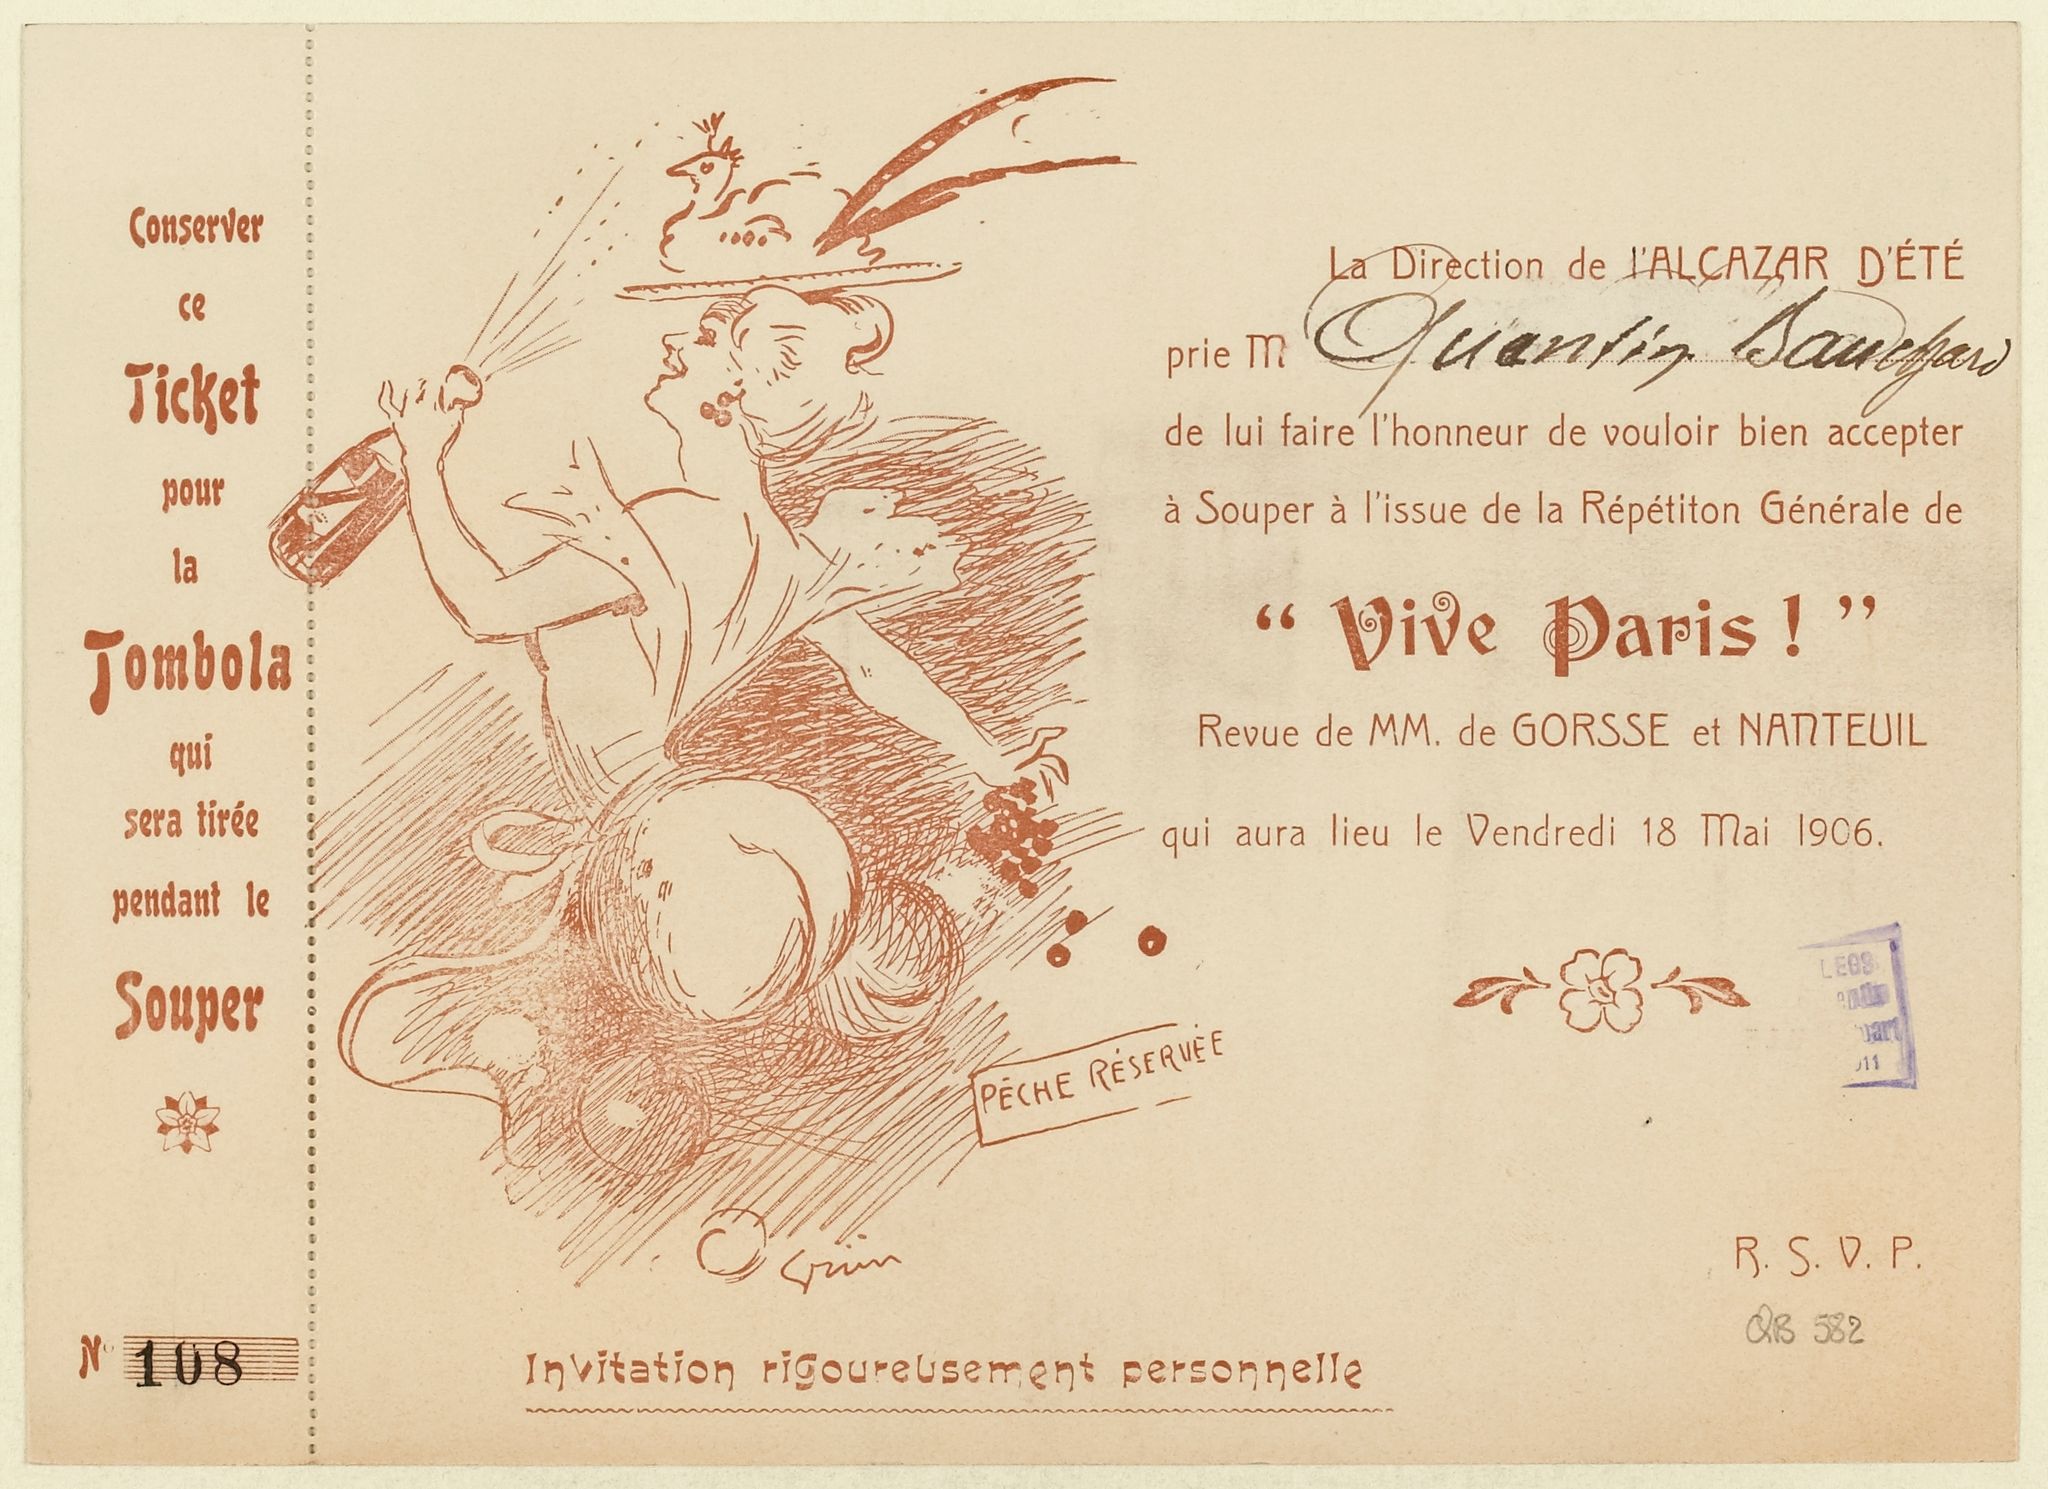 Conserver
ce
Ticket
pour
la
Tombola
qui
sera tirée
pendant le
Souper
N° 108
La Direction de l'ALCAZAR D'ÉTÉ
prie M Quentin Bauchard
de lui faire l'honneur de vouloir bien accepter
à Souper à l'issue de la Répétiton Générale de
“ Vive Paris ! ”
Revue de MM. de GORSSE et NANTEUIL
qui aura lieu le Vendredi 18 Mai 1906.
LEGS
PÊCHE RÉSERVÉE
Grün
R. S. V. P.
QB 582
Invitation rigoureusement personnelle